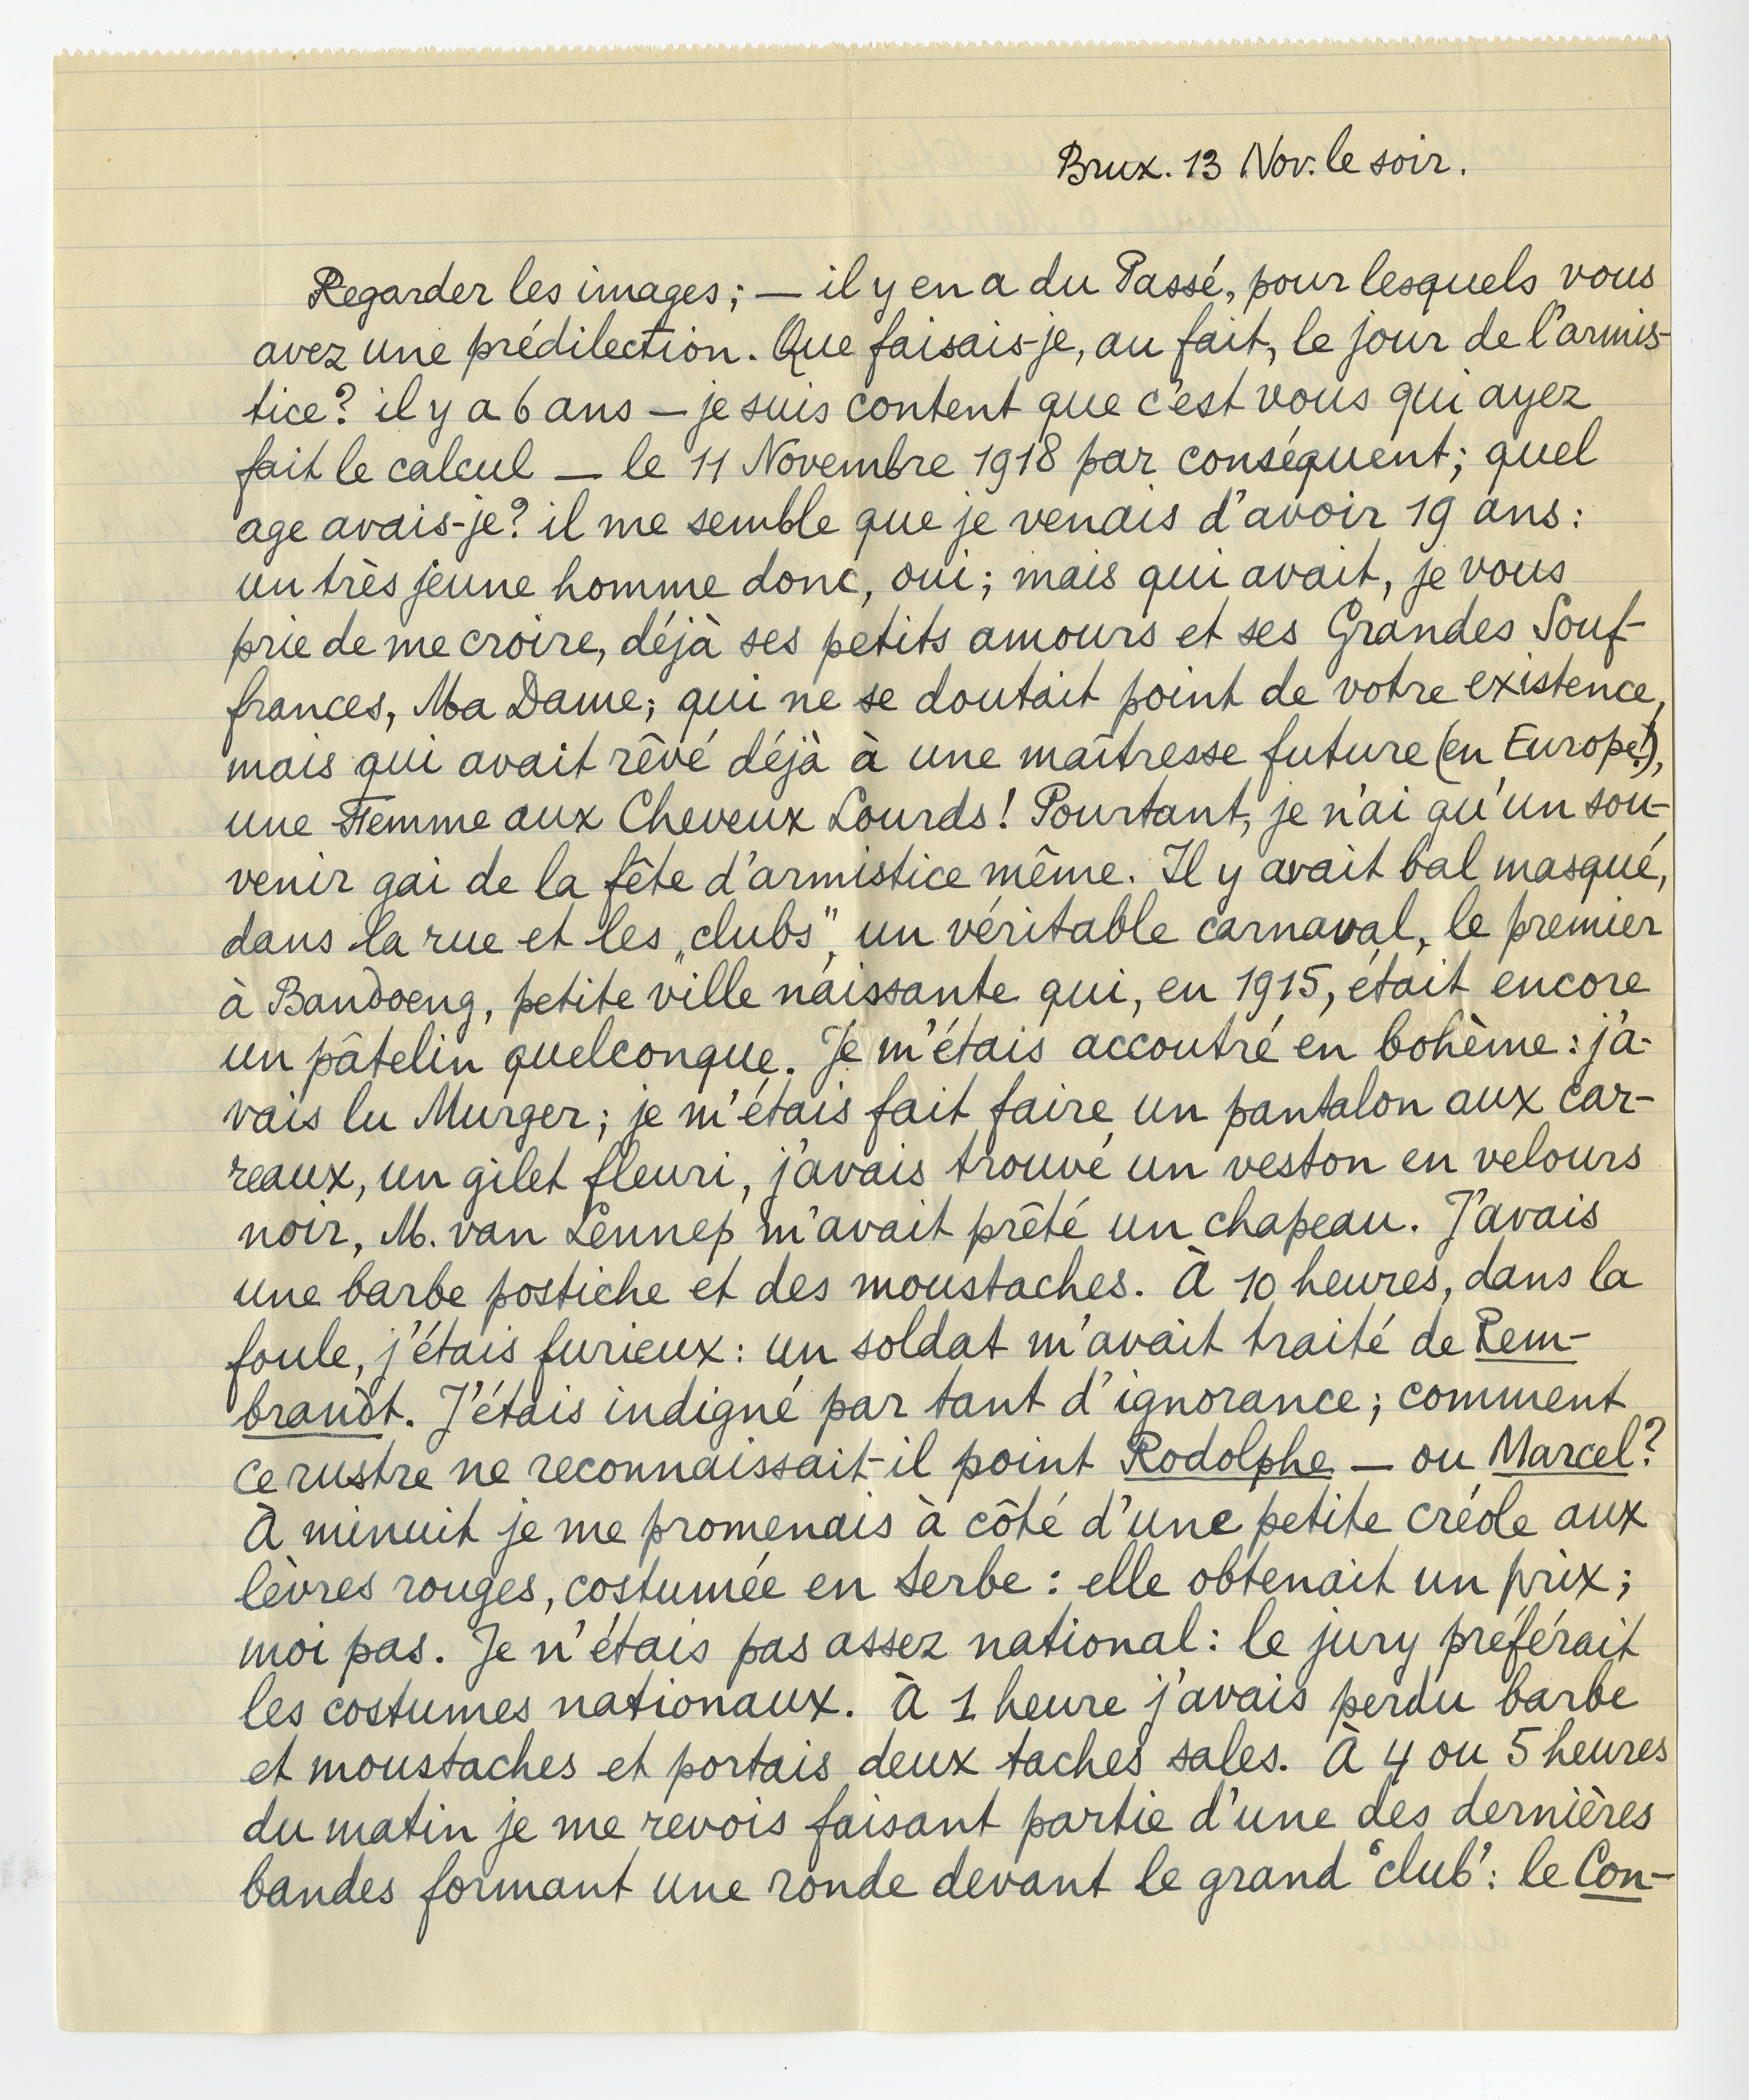 Brux. 13 Nov. le soir.
Regarder les images; — il y en a du Passé, pour lesquels vous
avez une prédilection. Que faisais-je, au fait, le jour de l'armis-
tice? il y a 6 ans — je suis content que c'est vous qui ayez
fait le calcul — le 11 Novembre 1918 par conséquent; quel
age avais-je? il me semble que je venais d'avoir 19 ans:
un très jeune homme donc, oui; mais qui avait, je vous
prie de me croire, déjà ses petits amours et ses Grandes Souf-
frances, Ma Dame; qui ne se doutait point de votre existence,
mais qui avait rêvé déjà à une maîtresse future (en Europe!),
une Femme aux Cheveux Lourds! Pourtant, je n'ai qu'un sou-
venir gai de la fête d'armistice même. Il y avait bal masqué,
dans la rue et les „clubs”, un véritable carnaval, le premier
à Bandoeng, petite ville naissante qui, en 1915, était encore
un pâtelin quelconque. Je m'étais accoutré en bohème: j'a-
vais lu Murger; je m'étais fait faire un pantalon aux car-
reaux, un gilet fleuri, j'avais trouvé un veston en velours
noir, M. van Lennep m'avait prêté un chapeau. J'avais
une barbe postiche et des moustaches. À 10 heures, dans la
foule, j'étais furieux: un soldat m'avait traité de Rem-
brandt. J'étais indigné par tant d'ignorance; comment
ce rustre ne reconnaissait-il point Rodolphe — ou Marcel?
À minuit je me promenais à côté d'une petite créole aux
lèvres rouges, costumée en Serbe: elle obtenait un prix;
moi pas. Je n'étais pas assez national: le jury préférait
les costumes nationaux. À 1 heure j'avais perdu barbe
et moustaches et portais deux taches sales. À 4 ou 5 heures
du matin je me revois faisant partie d'une des dernières
bandes formant une ronde devant le grand ‘club’: le Con-